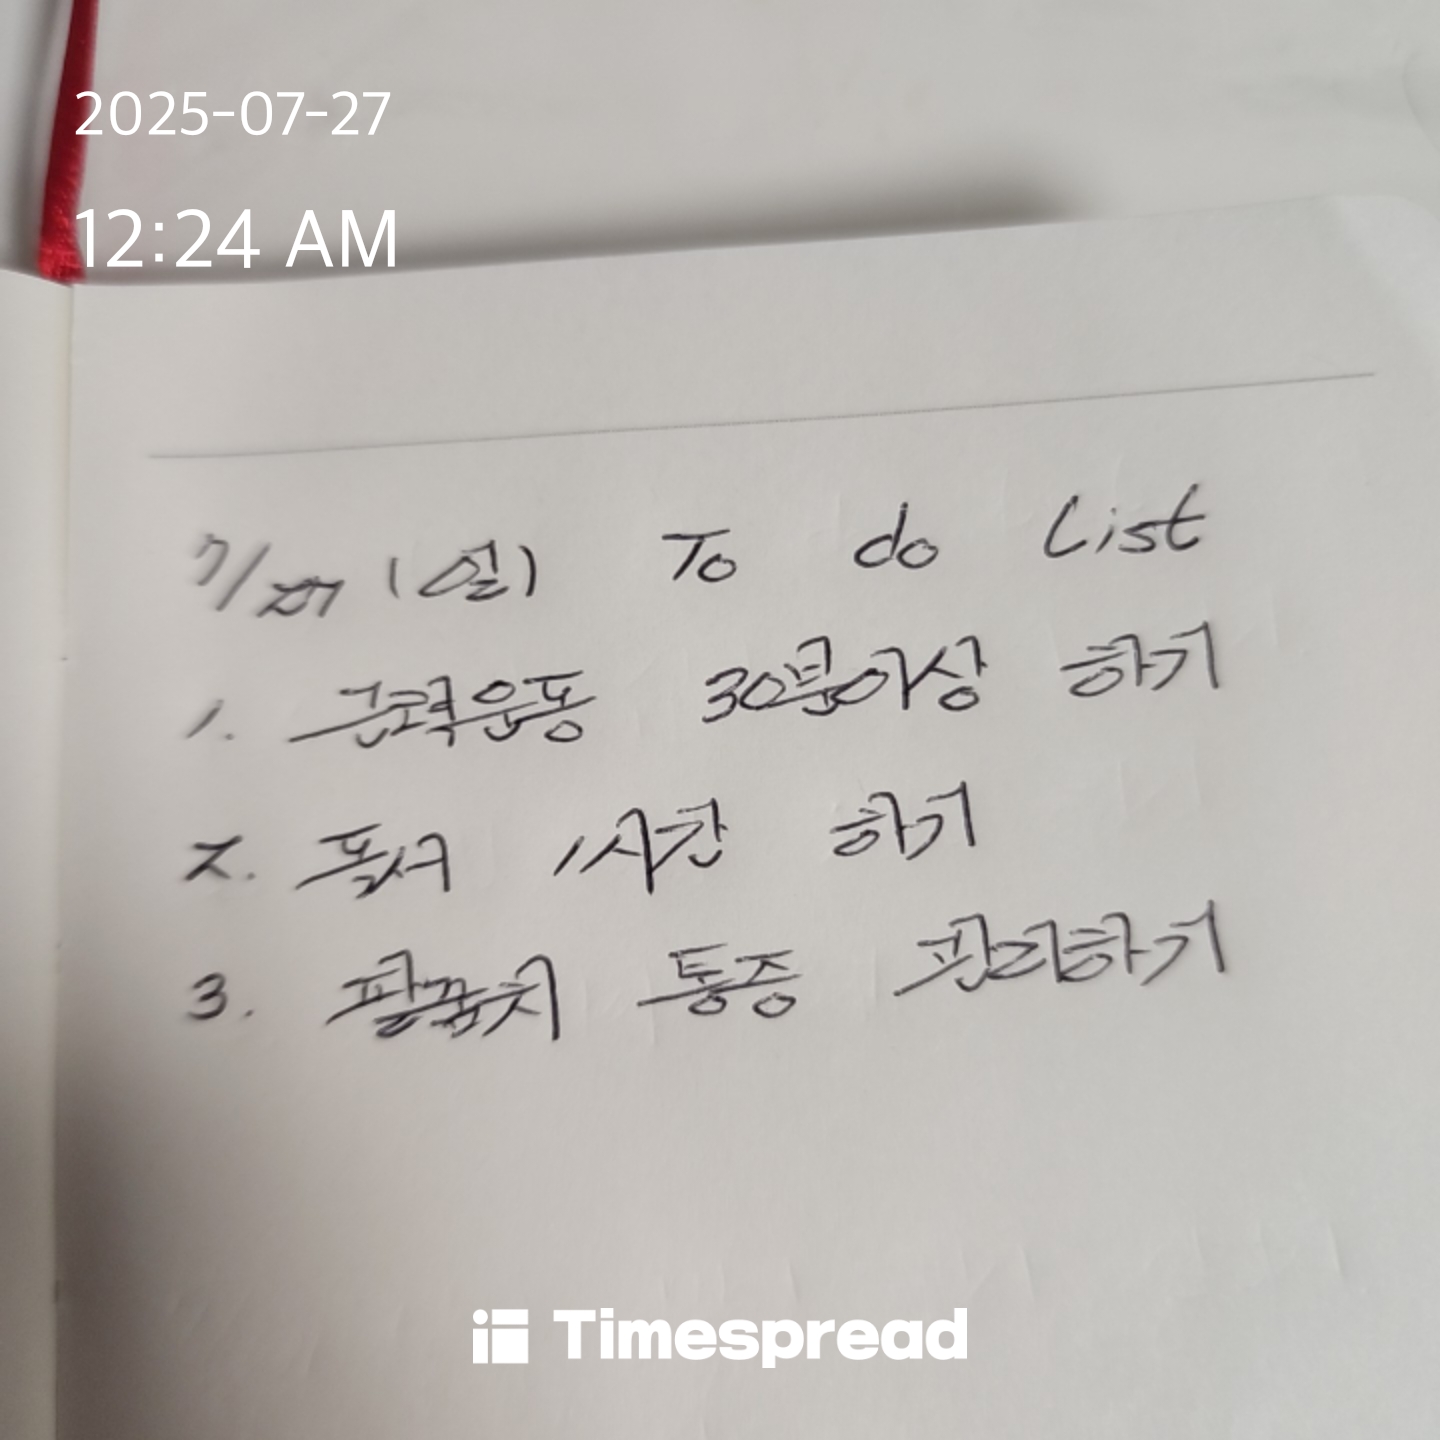 2025-07-27
12:24 AM
7/27 (일) To do List
1. 근력운동 30분이상 하기
2. 독서 1시간 하기
3. 팔꿈치 통증 관리하기
Timespread